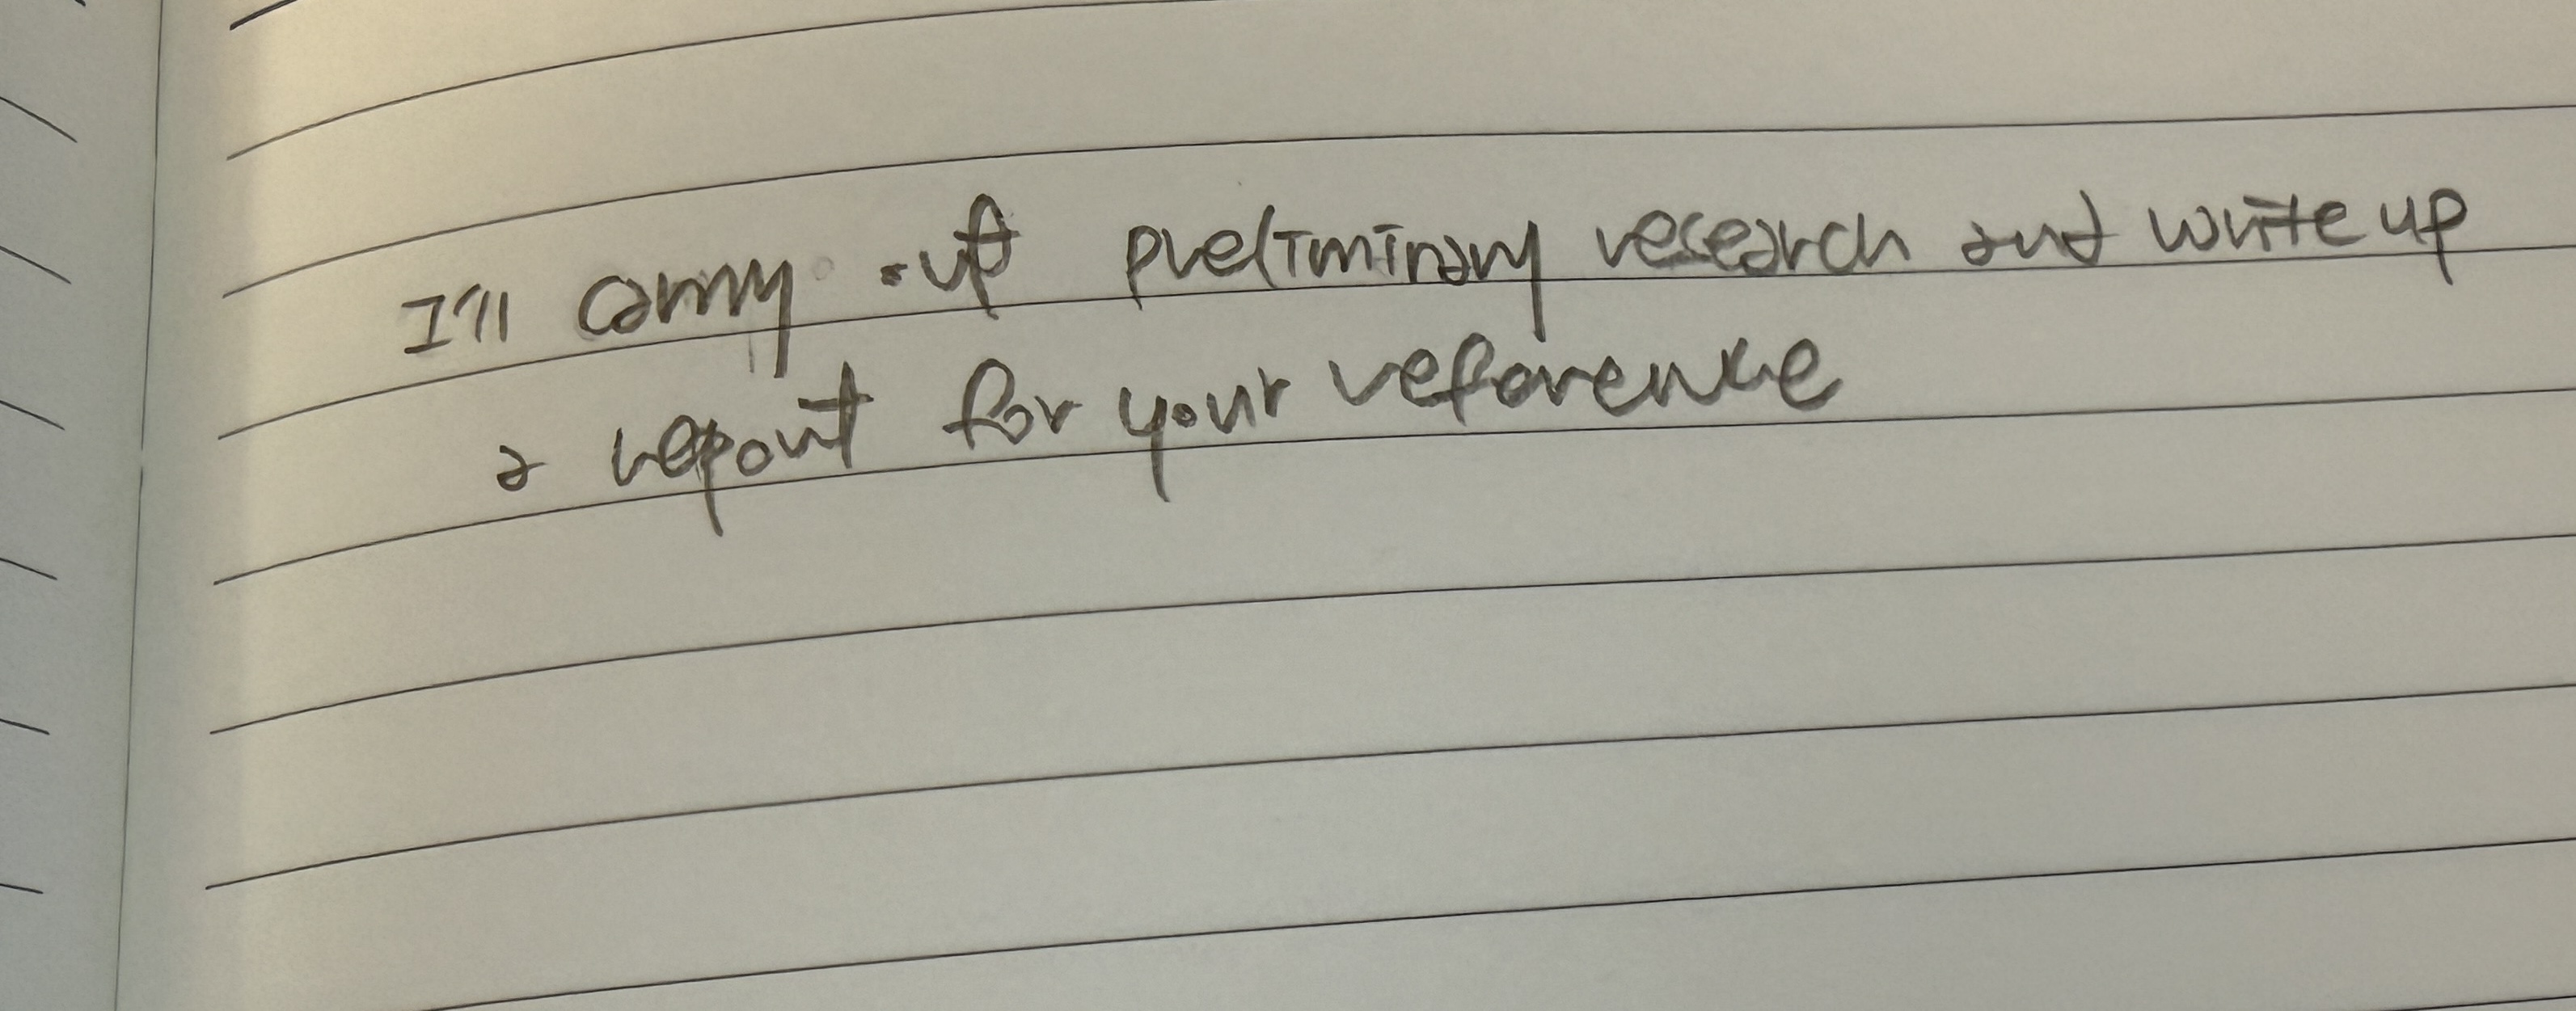 I'll carry out preliminary research and write up
a report for your reference